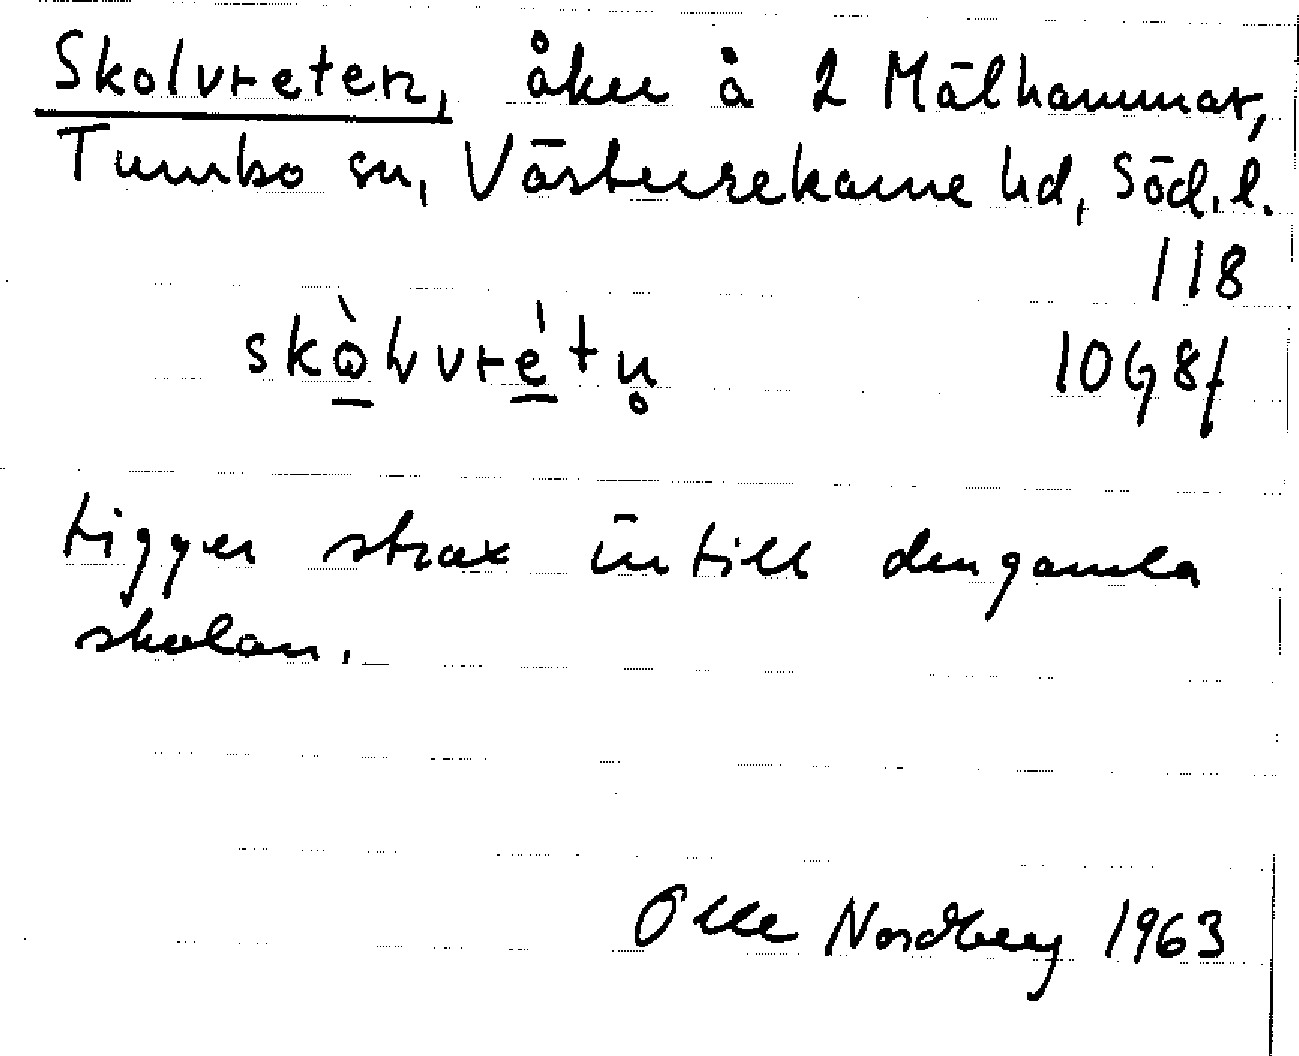 Skolvreten, åker å 2 Mälhammar,
Tumbo sn, Västerrekarne hd, Söd. l.
118
10G8f
ligger strax intill den gamla
skolan.
Olle Nordberg 1963